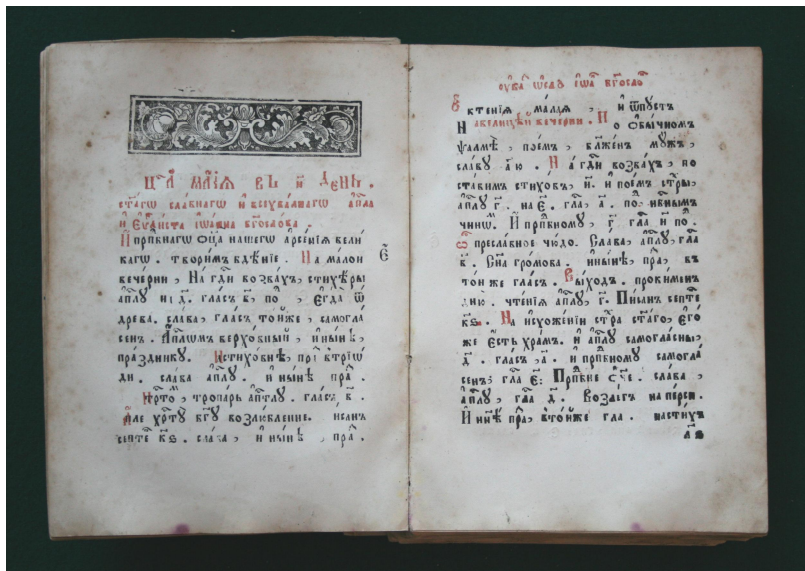 мц҃а маїа въ и҃ день .
ст҃агѡ славнагѡ и҆ всехвалнагѡ а҆пⷭ҇ла
и҆ е҆ѵⷢ҇листа і҆ѡанна бг҃ослова .
И҆ прпⷣбнагѡ ѻ҆ц҃а нашегѡ а҆рсенїѧ вели
кагѡ . творимъ бдѣнїе . На малои
вечерни , На гдⷭ҇и возвахъ , стихѣры
а҆пⷭ҇лу на д҃ . гласъ в҃ , по , Е҆гда ѿ
древа . слава , гласъ тойже , самогла
сенъ . А҆пⷭ҇лѡмъ верховный , и҆ нынѣ ,
празднику . Нстиховнѣ , при крⷭ҇тѣ
слава а҆пⷭ҇лу . и҆ нынѣ праⷥ .
тропарь а҆пⷭ҇тлу . гласъ в҃ .
А҆пⷭ҇ле хрⷭ҇ту бг҃у возлюбленне . писанъ
септеⷨ к҃ѕ . слава , и҆ нынѣ , праⷥ .
і҆ѡⷩ҇а бг҃ослоⷡ
е҆ктенїѧ малаѧ , и҆ ѿпустъ
Навелицѣй вечерни . По ѻ҆бычномъ
ѱалмѣ , поемъ , бл҃женъ мужъ ,
славу а҃ю . На гдⷭ҇и возвахъ , по
ставимъ стиховъ , и҃ . и҆ поемъ стⷯры ,
а҆пⷭ҇лу г҃ . на е҃ . глаⷭ , а҃ . подобнымъ
чинѡⷨ . И҆ прпⷣбному , г҃ глаⷭ и҃ поⷣ .
Ѽ преславное чюдо . Слава , а҆пⷭ҇лу , глаⷭ
в҃ . Сн҃а громова . инынѣ , праⷥ , въ
той же гласъ . Выходъ . прокимен
дн҃ю . чтенїѧ а҆пⷭ҇лу , г҃ . Писаны септеⷨ
к҃ѕ . На исхоженїи стⷯра ст҃аго , е҆го
же е҆сть храмъ . и҆ а҆пⷭ҇лу самогласны
д҃ . гласъ , а҃ . и҆ прпⷣбному самогла
сенъ , глаⷭ е҃ : Прпⷣбне ѻ҆ч҃е . слава ,
а҆пⷭ҇лу , глаⷭ д҃ . Возлегъ на перси .
И҆ нн҃ѣ праⷥ , втойже глаⷭ . настихъ